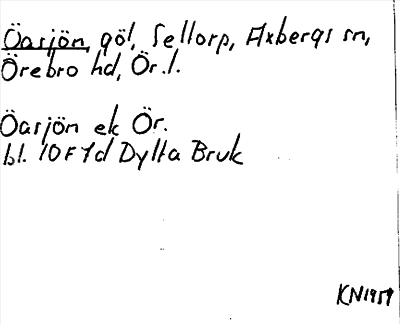 Öasjön, göl, Sellorp, Axbergs sn,
Örebro hd, Ör. l.
Öasjön ek Ör.
bl. 10F 7d Dylta Bruk
KN1959